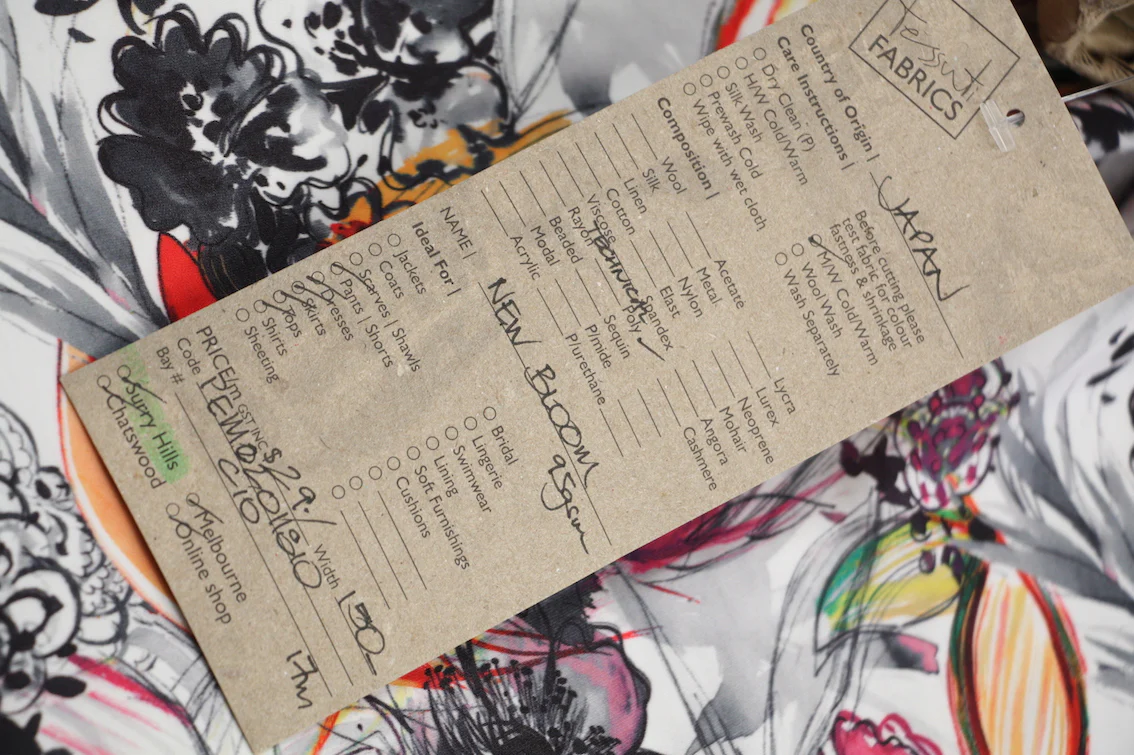 Tessuti
FABRICS
Country of Origin | JAPAN
Care Instructions |
Dry Clean (P)
H/W Cold/Warm
Silk Wash
Prewash Cold
Wipe with wet cloth
Before cutting please
test fabric for colour
fastness & shrinkage
M/W Cold/Warm
Wool Wash
Wash Separately
Composition |
Wool
Silk
Linen
Cotton
Viscose
Rayon
Beaded
Modal
Acrylic
Acetate
Metal
Nylon
Elast
Spandex
TECHNICAL Poly ✓
Sequin
P/mide
P/urethane
Lycra
Lurex
Neoprene
Mohair
Angora
Cashmere
NAME | NEW BLOOM
95gsm
Ideal For |
Jackets
Coats
Scarves | Shawls
Pants | Shorts
Dresses
Skirts
Tops
Shirts
Sheeting
Bridal
Lingerie
Swimwear
Lining
Soft Furnishings
Cushions
PRICE/m GST INC $ 29.- Width 150
Code
Bay # C10 17m
Surry Hills
Chatswood
Melbourne
Online shop